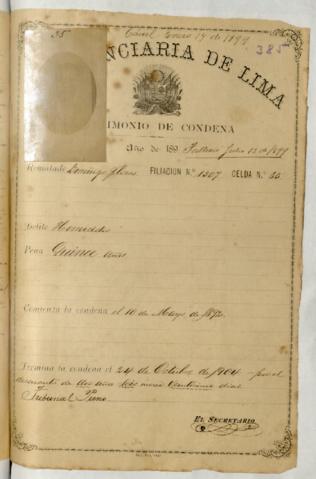 35 Enero 14 de 1899
385
NCIARIA DE LIMA
IMONIO DE CONDENA
Año de 189 Falleció Julio 13 de 1899
Rematado Domingo Flores FILIACION N.º 1507 CELDA N.º 35
Delito Homicidio
Pena Quince años
Comienza la condena el 10 de Mayo de 1892
Termina la condena el 24 de Octubre de 1904 por el
descuento de dos años seis meses días
Tribunal Pleno
EL SECRETARIO